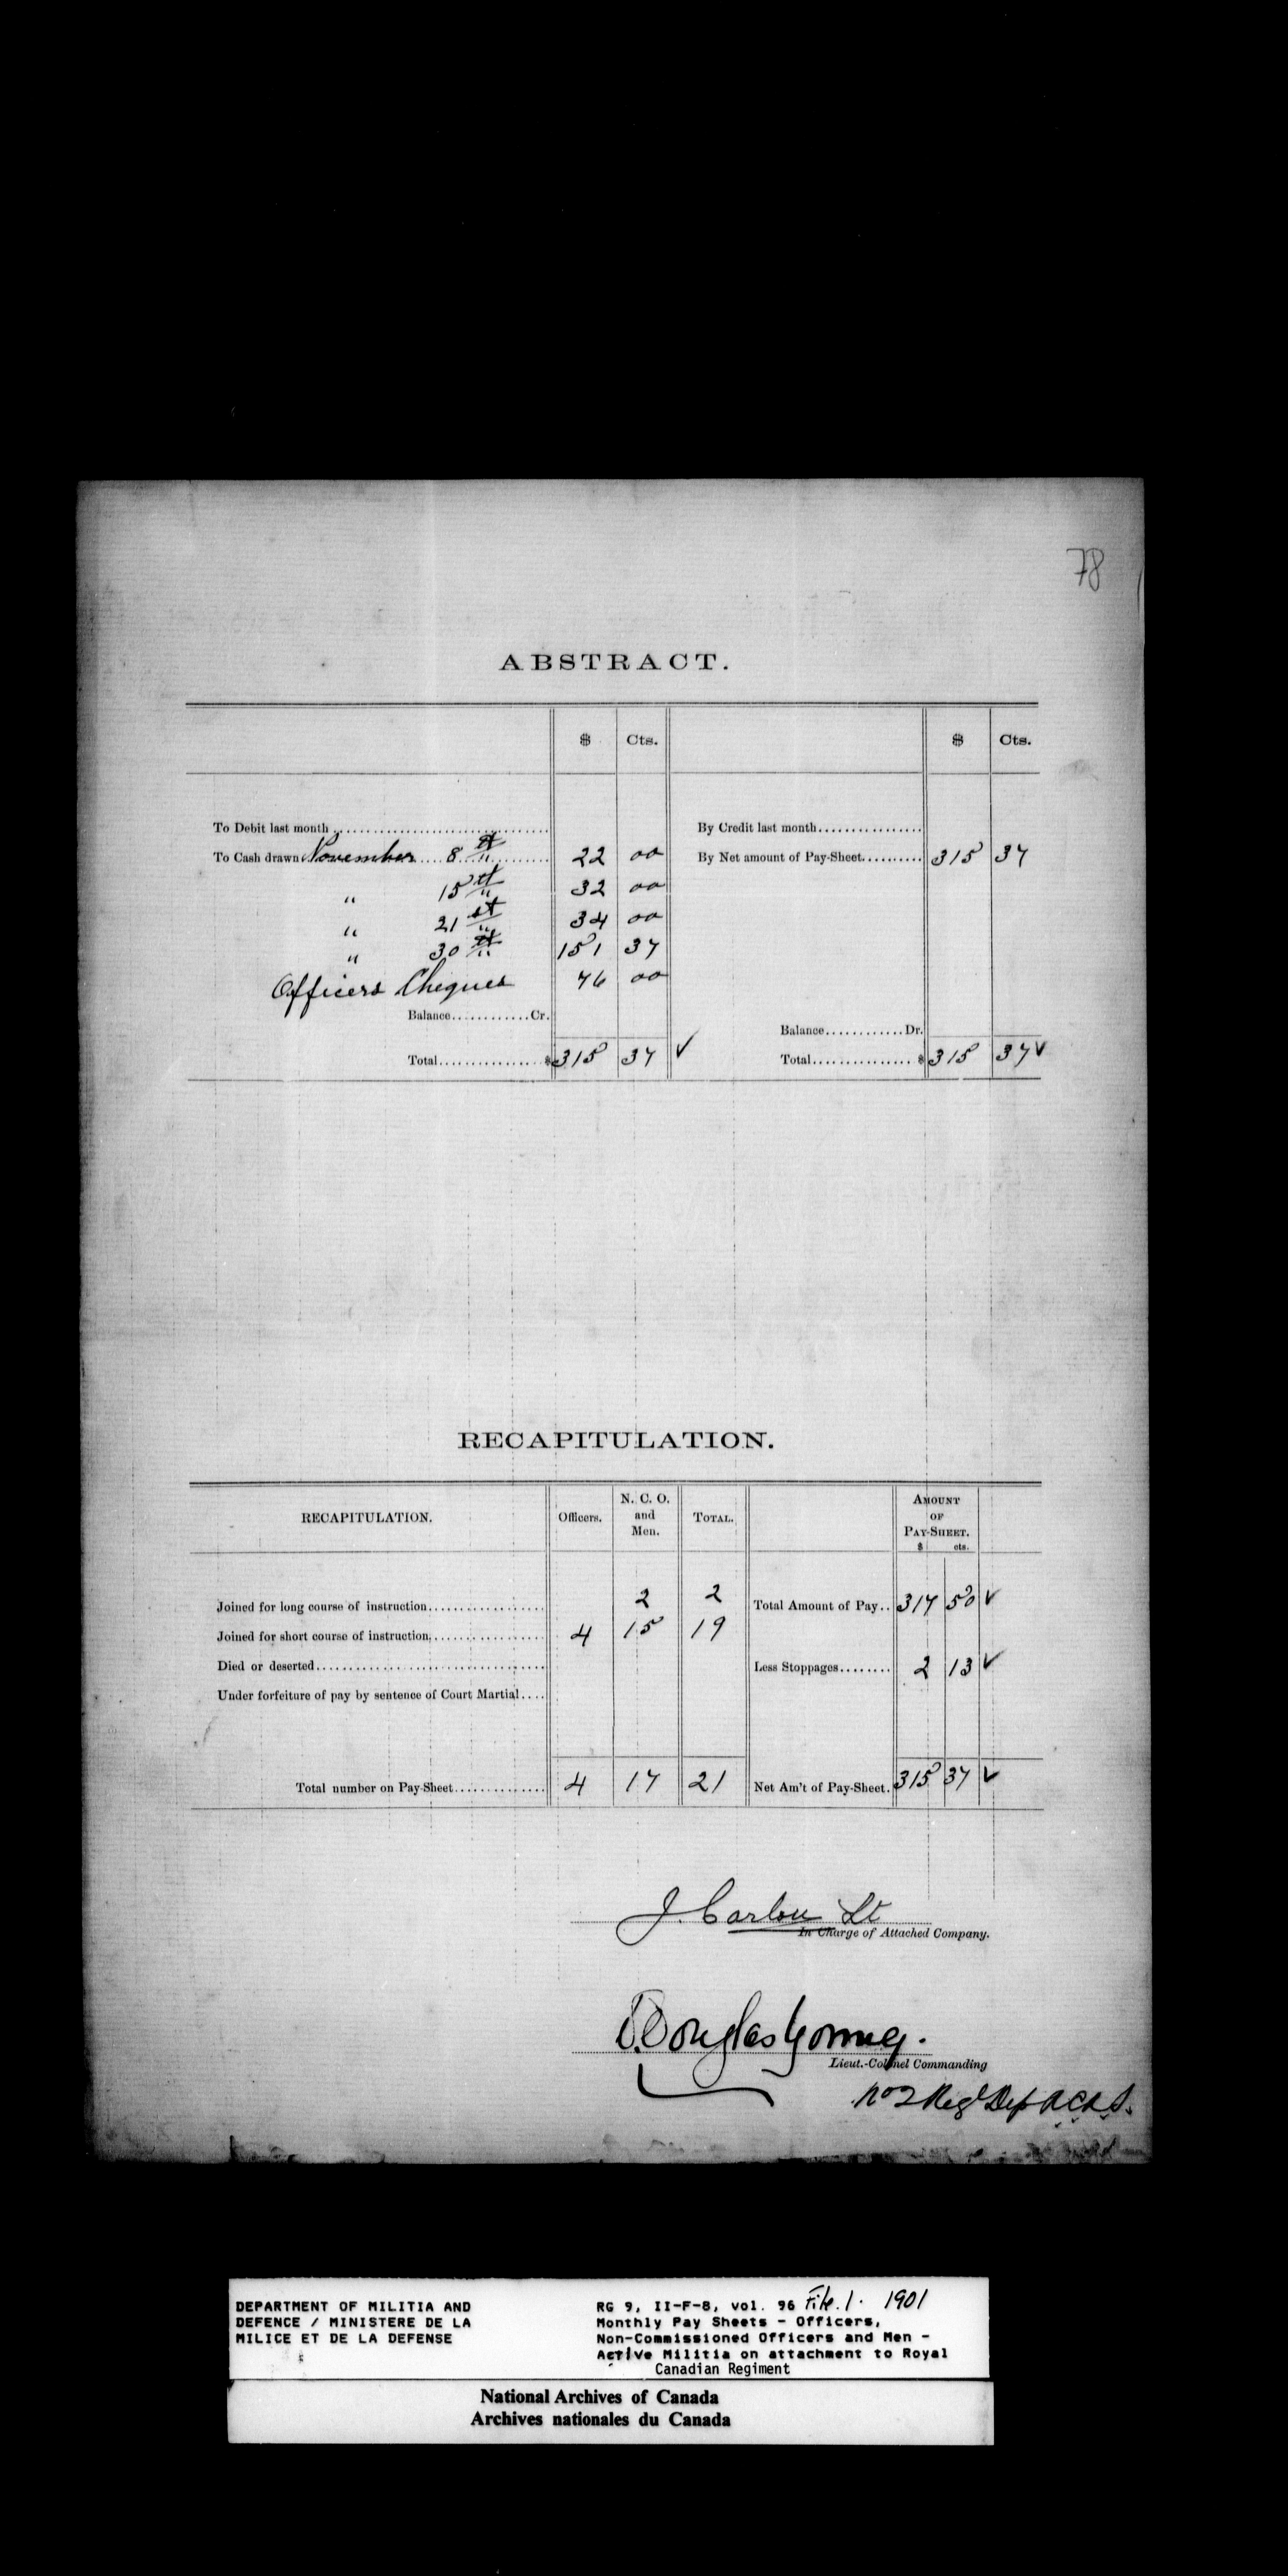 78
ABSTRACT.
$ Cts. $ Cts.
To Debit last month By Credit last month
To Cash drawn November 8th 22 00 By Net amount of Pay-Sheet 315 37
" 15th 32 00
" 21st 34 00
" 30th 151 37
Officers Cheques 76 00
Balance Cr.
Balance Dr.
Total $ 315 37 ✓ Total $ 315 37 ✓
RECAPITULATION.
RECAPITULATION. Officers. N. C. O. and Men. TOTAL. AMOUNT OF PAY-SHEET. $ cts.
Joined for long course of instruction 2 2 Total Amount of Pay 317 50 ✓
Joined for short course of instruction 4 15 19
Died or deserted Less Stoppages 2 13 ✓
Under forfeiture of pay by sentence of Court Martial
Total number on Pay-Sheet 4 17 21 Net Am't of Pay-Sheet. 315 37 ✓
J. Carlon Lt
In Charge of Attached Company.
D. Douglas Young.
Lieut.-Colonel Commanding
No 2 Regl Dep
DEPARTMENT OF MILITIA AND
DEFENCE / MINISTERE DE LA
MILICE ET DE LA DEFENSE
RG 9, II-F-8, vol. 96 File. 1. 1901
Monthly Pay Sheets - Officers,
Non-Commissioned Officers and Men -
Active Militia on attachment to Royal
Canadian Regiment
National Archives of Canada
Archives nationales du Canada